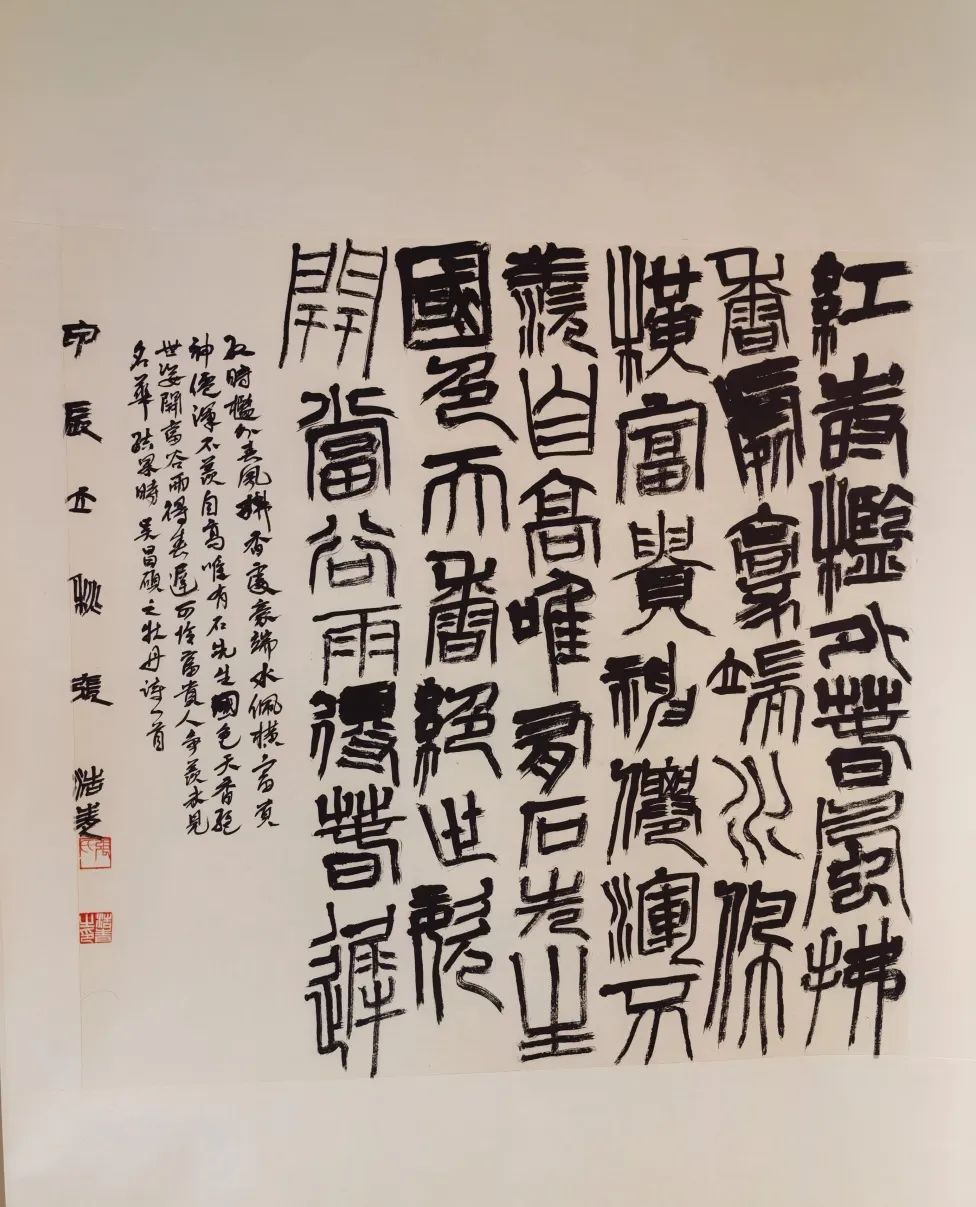 紅時檻外春風拂
香處豪端水佩
橫富貴神僊渾不
羨自高唯有石先生
國色天香絕世姿
開當谷雨得春遲
紅時檻外春風拂香處豪端水佩橫富貴
神僊渾不羨自高唯有石先生國色天香絕
世姿開當谷雨得春遲可怜富貴人争羨未見
名華結果時 吴昌碩之牡丹詩一首
甲辰立秋張浩